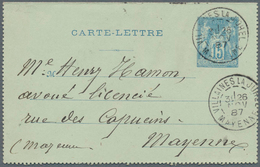 CARTE-LETTRE
15
VILLAINES LA JUHEL
Me Henry Hamon,
avoué licencié
VILLAINES LA JUHEL
26
87
MAYENNE
rue des Capucins
Mayenne
(Mayenne)